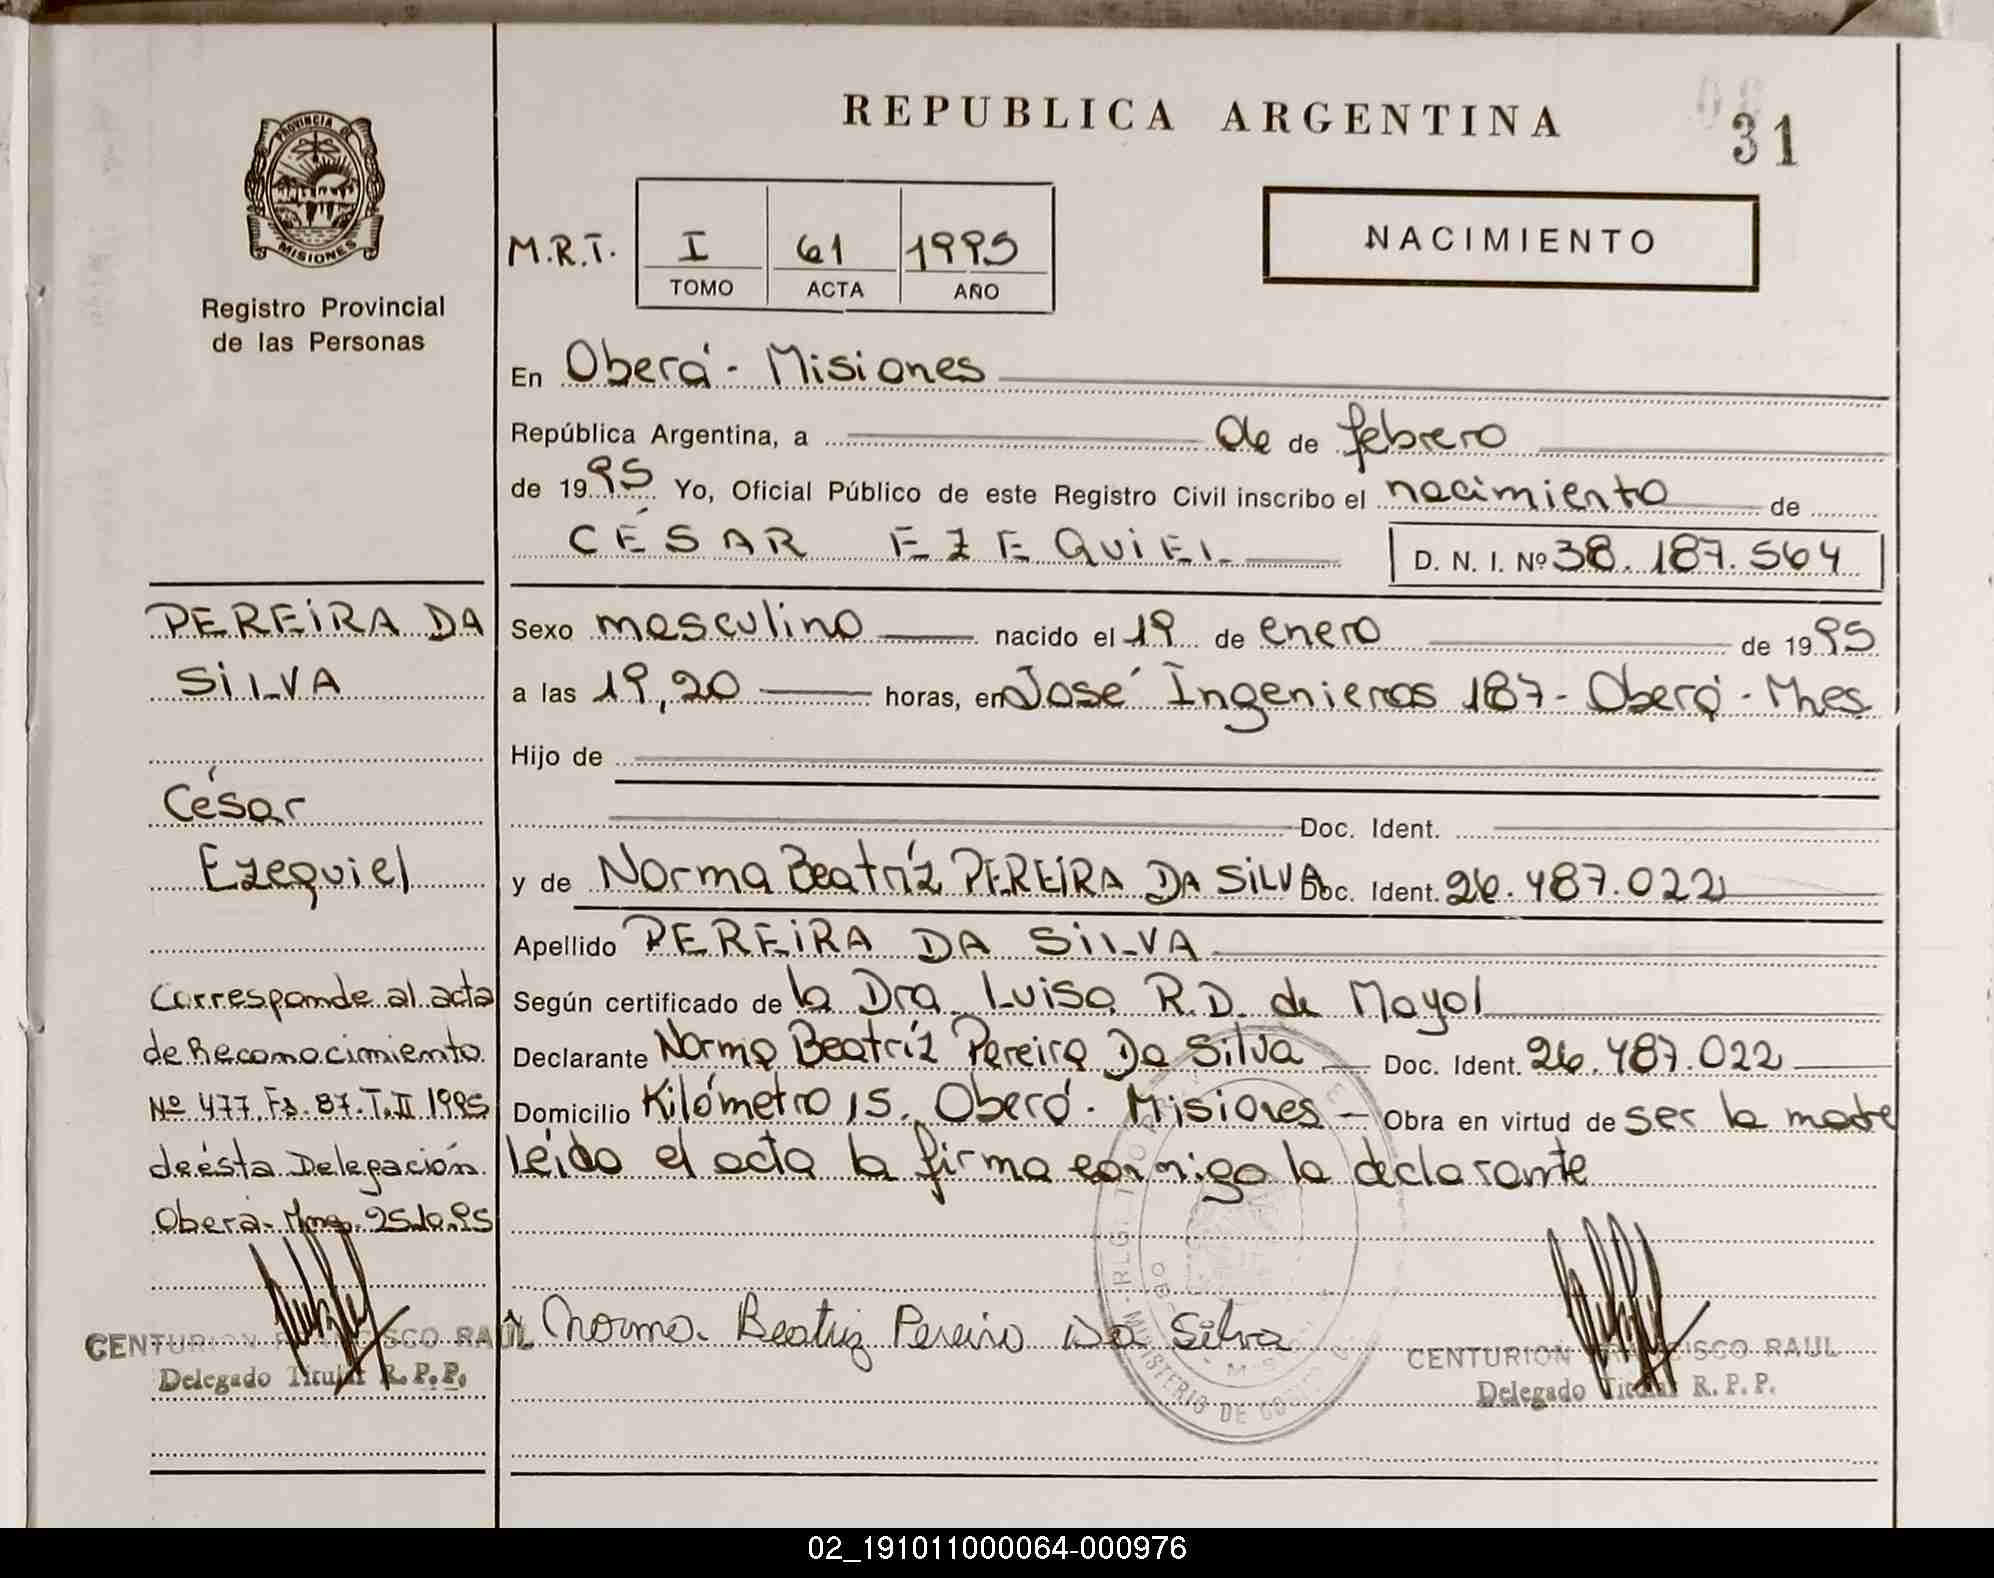 REPUBLICA ARGENTINA
31
PROVINCIA DE
MISIONES
Registro Provincial
de las Personas
M.R.T. I 61 1995
TOMO ACTA AÑO
NACIMIENTO
En Oberá - Misiones
República Argentina, a de de febrero
de 1995 Yo, Oficial Público de este Registro Civil inscribo el nacimiento de
CÉSAR EZEQUIEL D. N. I. Nº 38.187.564
Sexo masculino nacido el 19 de enero de 1995
a las 19,20 horas, en José Ingenieros 187 - Oberá - Mnes
Hijo de
Doc. Ident.
y de Norma Beatríz PEREIRA DA SILVA Doc. Ident. 26.487.022
Apellido PEREIRA DA SILVA
Según certificado de la Dra Luisa R.D. de Mayol
Declarante Norma Beatríz Pereira Da Silva Doc. Ident. 26.487.022
Domicilio Kilómetro 15. Oberá - Misiones - Obra en virtud de ser la madre
leído el acta la firma conmigo la declarante
Norma Beatriz Pereira Da Silva
CENTURION FRANCISCO RAUL
Delegado Titular R. P. P.
PEREIRA DA
SILVA
César
Ezequiel
Corresponde al acta
de Reconocimiento
Nº 477 Fs. 87. T. II 1995
de ésta Delegación
Oberá - Mnes. 25.10.95
CENTURION FRANCISCO RAUL
Delegado Titular R. P. P.
MINISTERIO DE
02_191011000064-000976